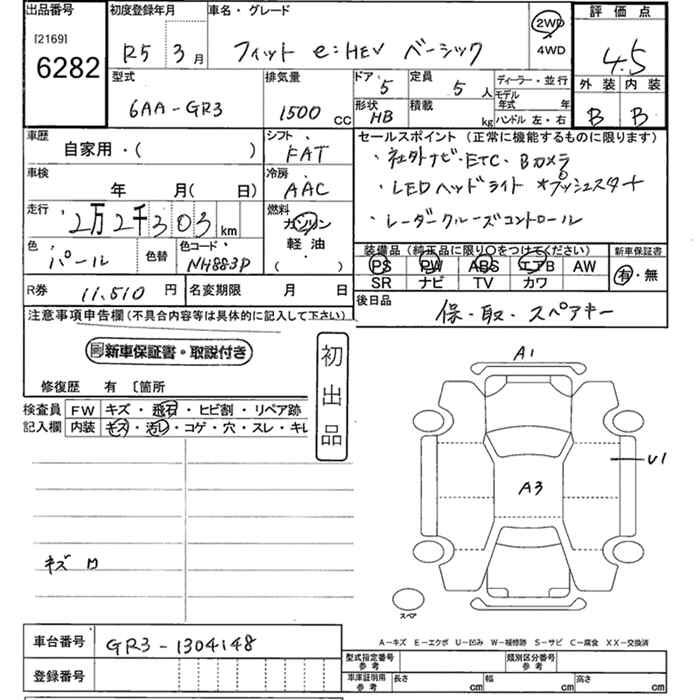 出品番号 初度登録年月 車名・グレード 評価点
[2169] 6282 R5 3月 フィット e:HEV ベーシック 2WD 4WD 4.5
型式 排気量 ドア 5 定員 5人 ディーラー・並行 外装 内装
6AA-GR3 1500cc 形状 HB 積載 kg モデル年式 年 B B
ハンドル 左・右
車歴 シフト セールスポイント(正常に機能するものに限ります)
自家用・( ) FAT ・社外ナビ・ETC・Bカメラ
車検 冷房 ・LEDヘッドライト *プッシュスタート
年 月( 日) AAC
走行 燃料 ・レーダークルーズコントロール
2万2千303km ガソリン
軽油
( )
色 色替 色コード 装備品(純正品に限り○をつけてください) 新車保証書
パール NH883P PS PW ABS エアB AW 有・無
SR ナビ TV カワ
R券 11,510円 名変期限 月 日 後日品
保・取・スペアキー
注意事項申告欄(不具合内容等は具体的に記入して下さい)
新車保証書・取説付き
初出品
修復歴 有 〔箇所
検査員 FW キズ・飛石・ヒビ割・リペア跡
記入欄 内装 キズ・汚レ・コゲ・穴・スレ・キレ
A1
U1
A3
キズ
スペア
A-キズ E-エクボ U-凹み W-補修跡 S-サビ C-腐食 XX-交換済
車台番号 GR3-1304148
型式指定番号 参考 類別区分番号 参考
登録番号
車庫証明用 参考 長さ cm 幅 cm 高さ cm